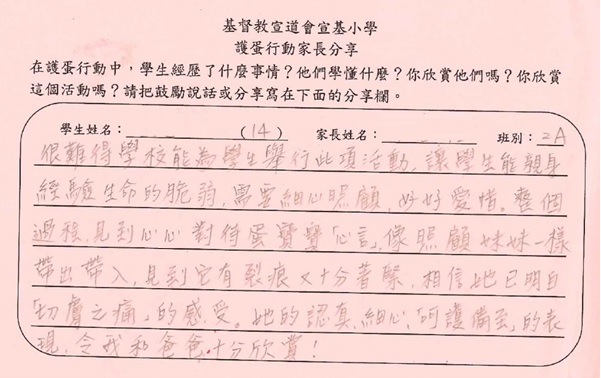 基督教宣道會宣基小學
護蛋行動家長分享
在護蛋行動中，學生經歷了什麼事情？他們學懂什麼？你欣賞他們嗎？你欣賞
這個活動嗎？請把鼓勵說話或分享寫在下面的分享欄。
學生姓名： (14) 家長姓名： 班別：2A
很難得學校能為學生舉行此項活動，讓學生能親身
經驗生命的脆弱，需要細心照顧，好好愛惜。整個
過程，見到心心對待蛋寶寶「心言」，像照顧妹妹一樣
帶出帶入，見到它有裂痕又十分着緊，相信她已明白
「切膚之痛」的感受。她的認真、細心、「呵護備至」的表
現，令我和爸爸十分欣賞！